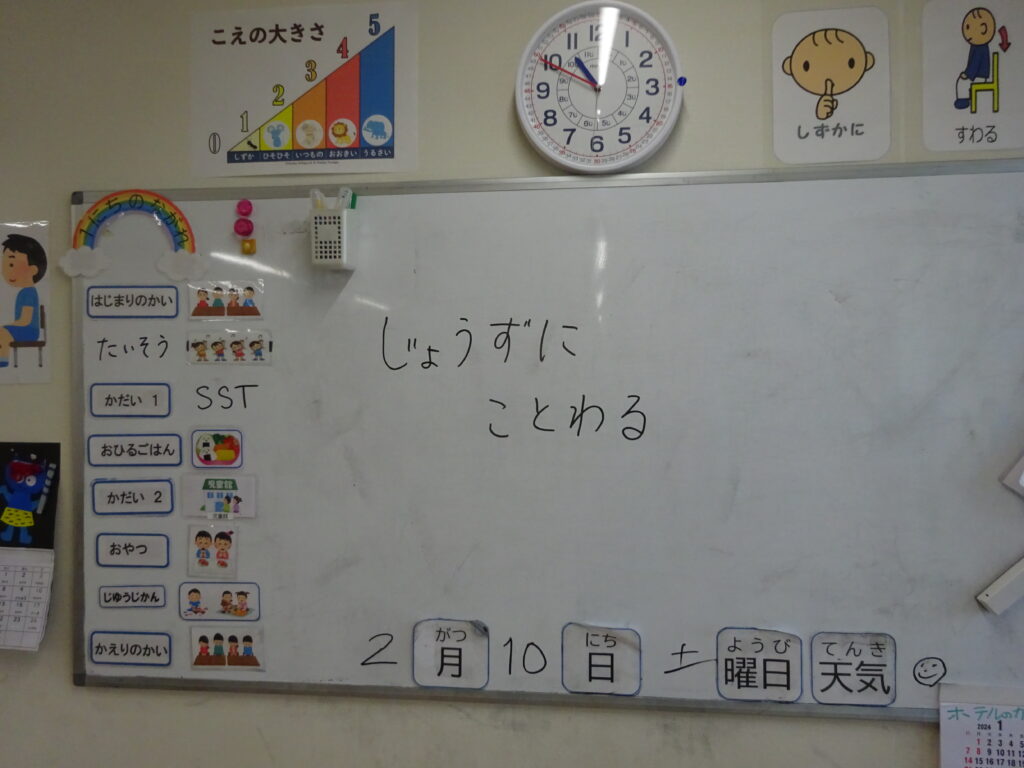 こえの大きさ
0 1 2 3 4 5
しずか ひそひそ いつもの おおきい うるさい
12 1 2 3 4 5 6 7 8 9 10 11
しずかに
すわる
1にちのながれ
はじまりのかい
たいそう
かだい 1 SST
おひるごはん
かだい 2
児童館
おやつ
じゆうじかん
かえりのかい
じょうずに
ことわる
がつ にち ようび てんき
2 月 10 日 土 曜日 天気
2024 1